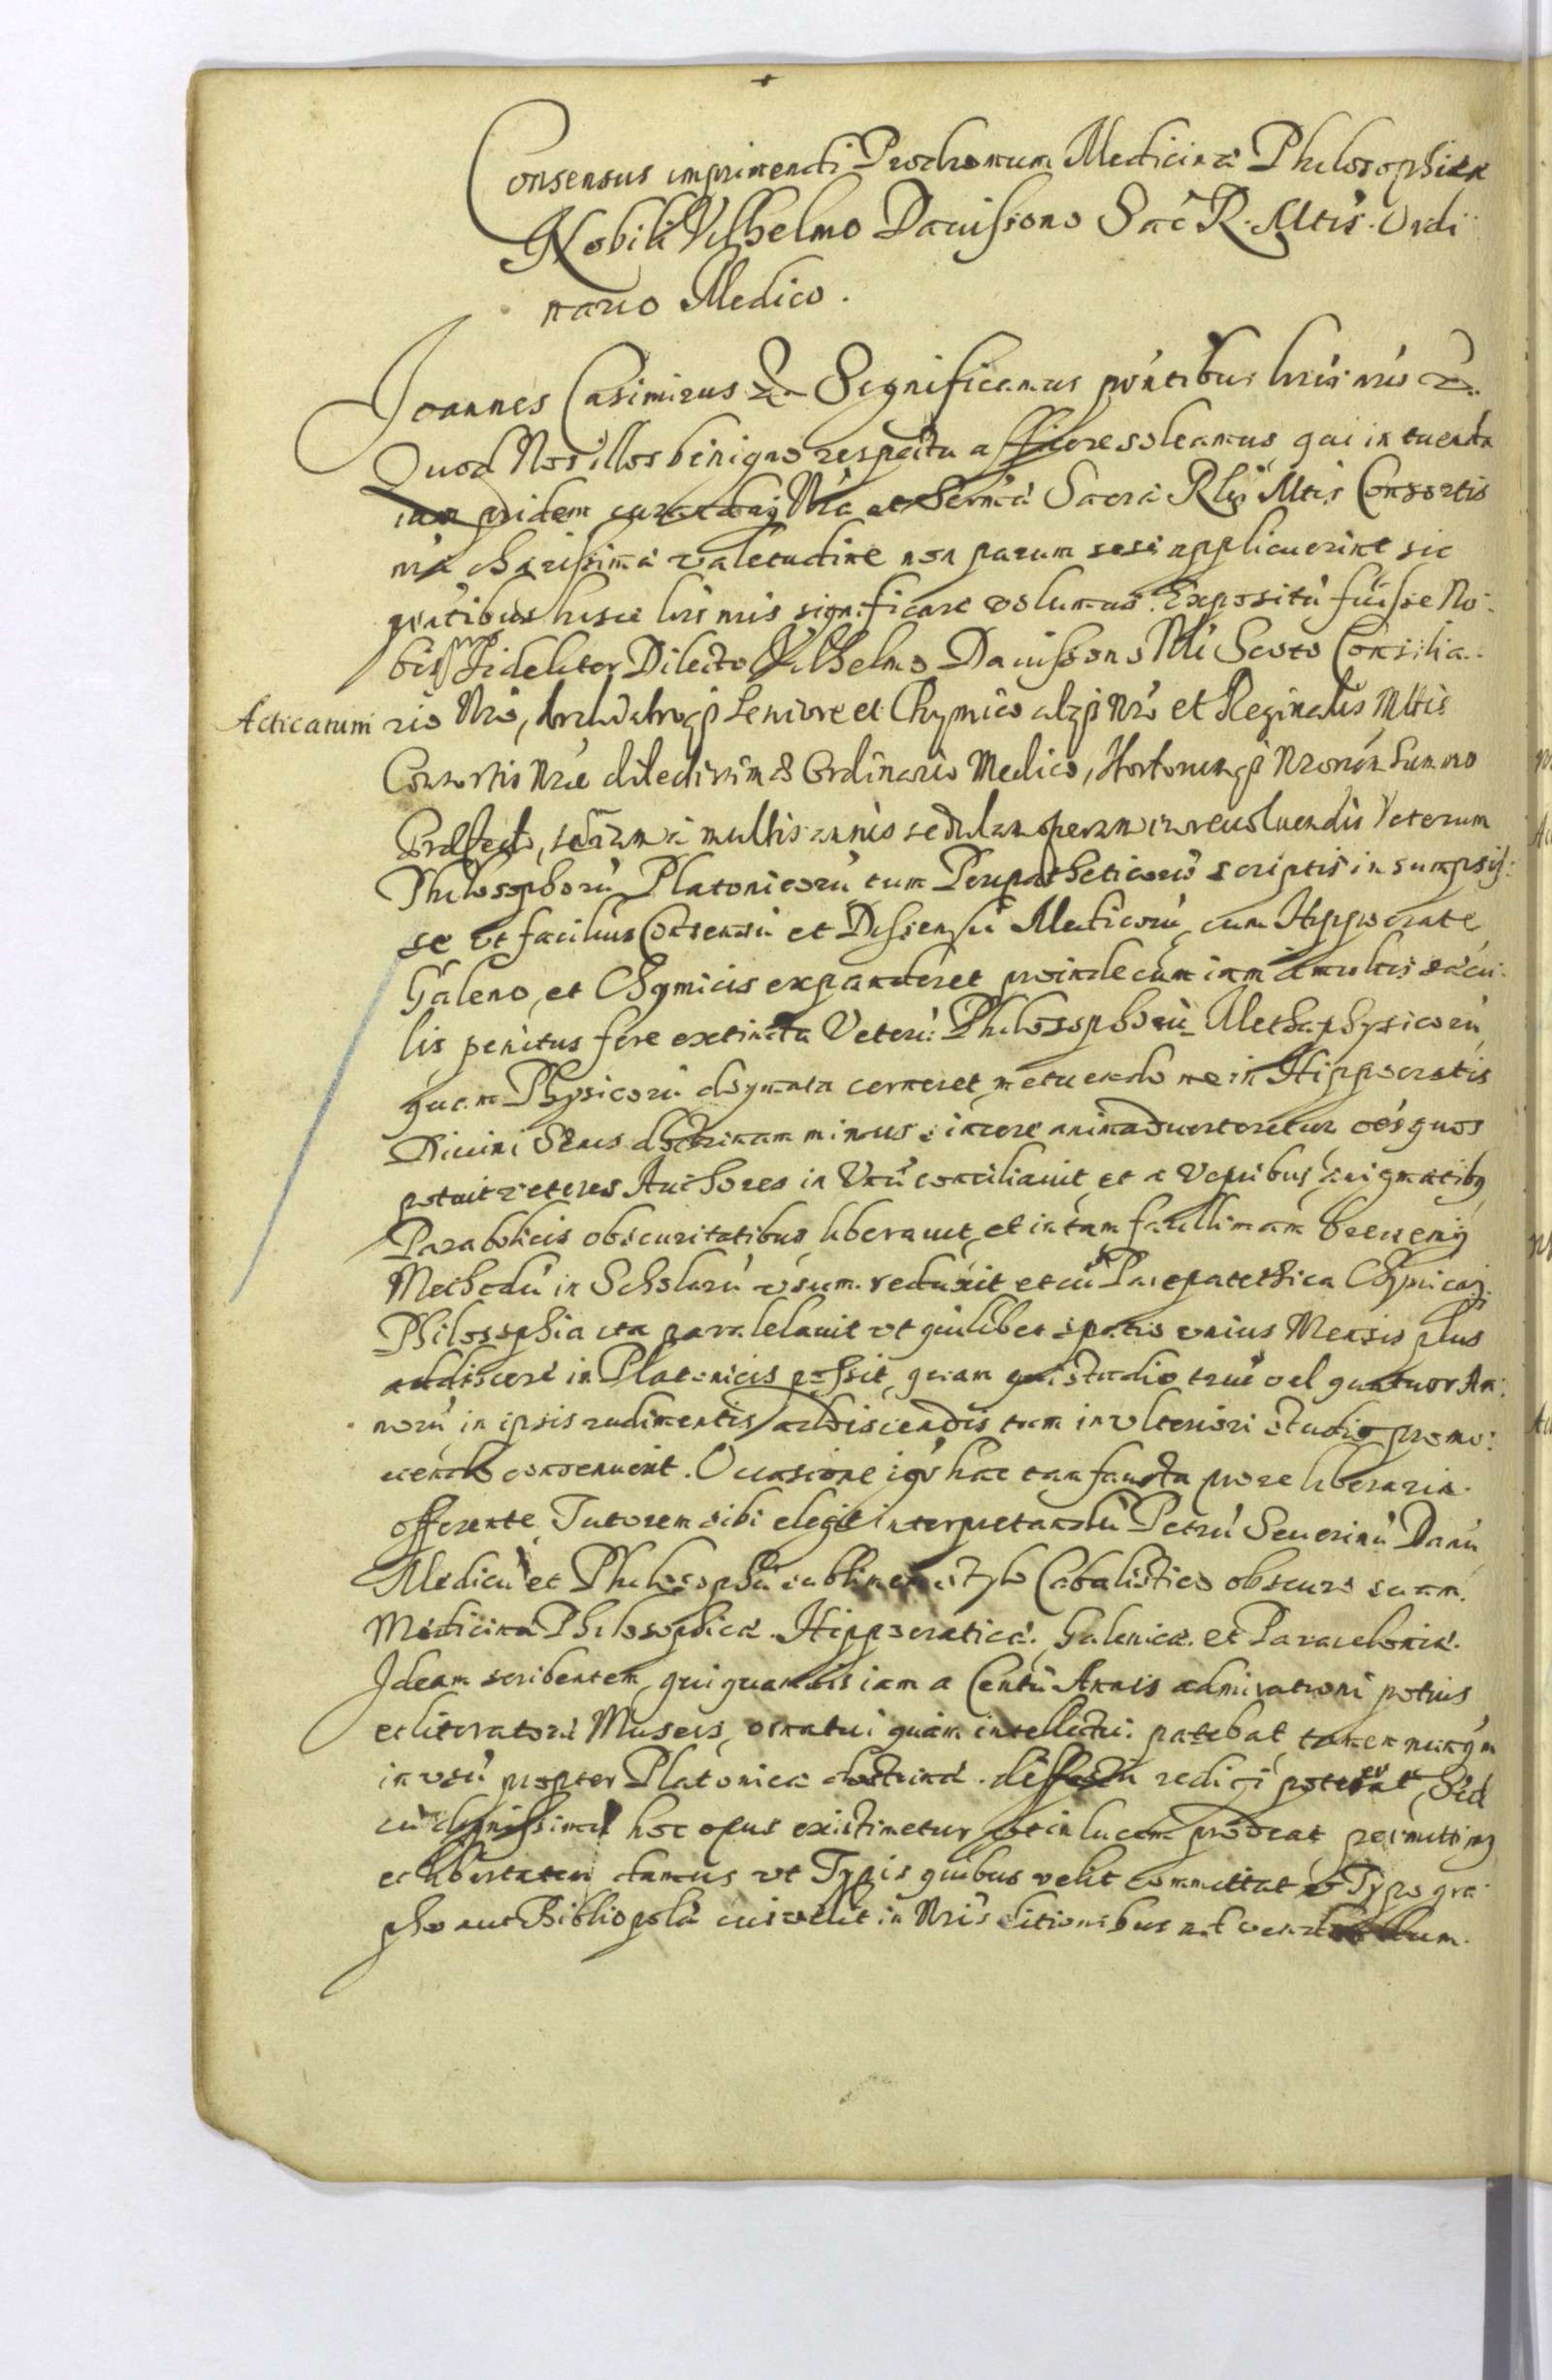 Consensus imprimendi Prodromum Medicinæ Philosophicæ
Nobili Vilhelmo Dauissono Sac R. Mtis. Ordi
nario Medico.
Joannes Casimirus &c Significamus pñtibus lris nris &c.
Quod Nos illos benigno respectu afficere soleamus, qui in tuenda
iam pridem curandaq Nra et Sermæ Sacræ Rlis Mtis Consortis
næ charissimæ valetudine non parum sese applicuerint sic
pñtibus hisce lris nris significare volumus. Expositũ fuisse No-
bis Fideliter Dilecto Vilhelmo Dauissono Nli Scoto Consilia-
Acticatum rio Nro, seniore et Chymico atqꝫ Nro et Reginalis Mttis
Consortis Nræ dilectissimæ Ordinario Medico, Hortorumqꝫ Nrorum Summo
Præfecto, se iam a multis annis sedulam operam in reuoluendis Veterum
Philosophorũ Platonicorũ tum Peripatheticorũ scriptis insumpsis-
se vt facilius Consensũ et Dissensũ Medicorũ cum Hyppocrate,
Galeno, et Chymicis expanderet proinde cum iam a multis sæcu-
lis penitus fere extincta Veterũ Philosophorũ Methaphysicorũ
quam Physicorũ dogmata cerneret metuendo ne in Hippocratis
Diuini Senis doctrinam minus sincere animaduerteretur oẽs quos
potuit veteres Authores in Vnũ conciliauit et a Vepribus ænigmatibꝫ
Parabolicis obscuritatibus liberauit, et in tam facillimam breuemqꝫ
Methodũ in Scholarũ vsum reduxit et cũ Peripatethica Chymicaqꝫ
Philosophia ita paralelauit vt quilibet spatio vnius Mensis plus
addiscere in Platonicis possit, quam qui studio triũ vel quatuor An-
norũ in ipsis rudimentis addiscendis tum in vlteriori studio promo-
uendo consenuerit. Occasione igr̃ hac tam fausta pro re liberaria
offerente Tutorem sibi elegit interpretandũ Petrũ Seuerinũ Danũ
Medicũ et Philosophũ sublimem stylo Cabalistico obscuro suam
Medicinæ Philosophicæ. Hippocraticæ. Galenicæ. et Paracelsticæ.
Jdeam scribentem, qui quamuis iam a Centũ Annis admirationi potius
et literatorũ Museis, ornatui quàm intellectui patebat tamen nunqm
in vsũ propter Platonicæ doctrinæ defectũ redigi poterat, Sed
cũ dignissimũ hoc opus existimetur vt in lucem prodeat permittimꝫ
et libertatem damus vt Typis quibus velit committat & Typogra-
pho aut Bibliopolæ cui velit in Nris ditionibus ad vendendum.